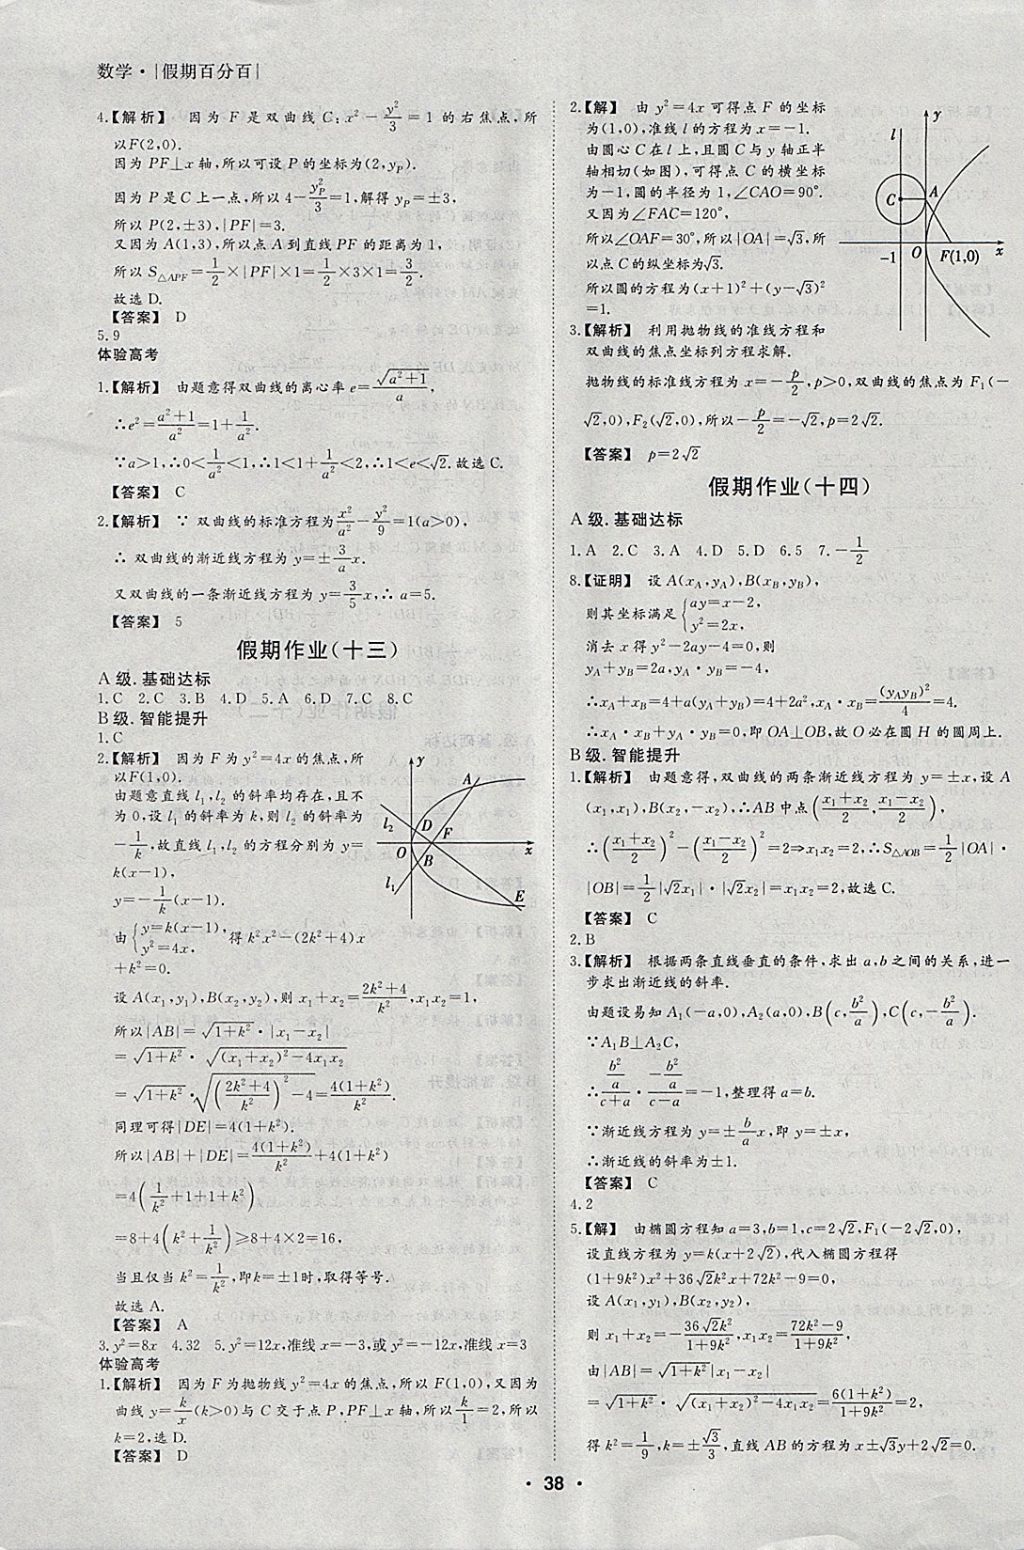 数学·|假期百分百|
4.【解析】 因为 F 是双曲线 C:x²-y²/3=1 的右焦点,所
以F(2,0).
因为 PF⊥x 轴,所以可设 P 的坐标为(2,y_P).
因为 P 是 C 上一点,所以 4-y_P²/3=1,解得 y_P=±3,
所以 P(2,±3),|PF|=3.
又因为 A(1,3),所以点 A 到直线 PF 的距离为 1,
所以 S△APF=1/2×|PF|×1=1/2×3×1=3/2.
故选 D.
【答案】 D
5.9
体验高考
1.【解析】 由题意得双曲线的离心率 e=√(a²+1)/a.
∴e²=(a²+1)/a²=1+1/a².
∵a>1,∴0<1/a²<1,∴1<1+1/a²<2,∴1<e<√2.故选 C.
【答案】 C
2.【解析】 ∵ 双曲线的标准方程为x²/a²-y²/9=1(a>0),
∴ 双曲线的渐近线方程为 y=±3/a x.
又双曲线的一条渐近线方程为 y=3/5 x,∴a=5.
【答案】 5
假期作业(十三)
A 级.基础达标
1.C 2.C 3.B 4.D 5.A 6.D 7.C 8.C
B 级.智能提升
1.C
2.【解析】 因为 F 为 y²=4x 的焦点,所
以F(1,0).
由题意直线 l₁,l₂ 的斜率均存在,且不
为 0,设 l₁ 的斜率为 k,则 l₂ 的斜率为
-1/k,故直线 l₁,l₂ 的方程分别为 y=
k(x-1),
y=-1/k(x-1).
由{y=k(x-1), y²=4x, 得 k²x²-(2k²+4)x
+k²=0.
设 A(x₁,y₁),B(x₂,y₂),则 x₁+x₂=(2k²+4)/k²,x₁x₂=1,
所以|AB|=√(1+k²)·|x₁-x₂|
=√(1+k²)·√((x₁+x₂)²-4x₁x₂)
=√(1+k²)·√(((2k²+4)/k²)²-4)=4(1+k²)/k².
同理可得|DE|=4(1+k²).
所以|AB|+|DE|=4(1+k²)/k²+4(1+k²)
=4(1/k²+1+1+k²)
=8+4(k²+1/k²)≥8+4×2=16,
当且仅当 k²=1/k²,即k=±1时,取得等号.
故选 A.
【答案】 A
3.y²=8x 4.32 5.y²=12x,准线 x=-3,或 y²=-12x,准线 x=3
体验高考
1.【解析】 因为 F 为抛物线 y²=4x 的焦点,所以 F(1,0),又因为
曲线 y=k/x(k>0)与 C 交于点 P,PF⊥x 轴,所以k/1=2,所以
k=2,选 D.
【答案】 D
2.【解】 由 y²=4x 可得点 F 的坐标
为(1,0),准线 l 的方程为 x=-1.
由圆心 C 在 l 上,且圆 C 与 y 轴正半
轴相切(如图),可得点 C 的横坐标
为-1,圆的半径为 1,∠CAO=90°.
又因为∠FAC=120°,
所以∠OAF=30°,所以|OA|=√3,所
以点 C 的纵坐标为√3.
所以圆的方程为(x+1)²+(y-√3)²
=1.
3.【解析】 利用抛物线的准线方程和
双曲线的焦点坐标列方程求解.
抛物线的标准线方程为 x=-p/2,p>0,双曲线的焦点为 F₁(-
√2,0),F₂(√2,0),所以-p/2=-√2,p=2√2.
【答案】 p=2√2
假期作业(十四)
A 级.基础达标
1.A 2.C 3.A 4.D 5.D 6.5 7.-1/2
8.【证明】 设 A(x_A,y_A),B(x_B,y_B),
则其坐标满足{ay=x-2, y²=2x,
消去 x 得 y²-2ay-4=0,则
y_A+y_B=2a,y_Ay_B=-4.
∴x_A+x_B=4+a(y_A+y_B)=4+2a²,x_A·x_B=(y_Ay_B)²/4=4.
∴x_A·x_B+y_Ay_B=0,即 OA⊥OB,故 O 必在圆 H 的圆周上.
B 级.智能提升
1.【解析】 由题意得,双曲线的两条渐近线方程为 y=±x,设 A
(x₁,x₁),B(x₂,-x₂),∴AB 中点((x₁+x₂)/2,(x₁-x₂)/2),
∴((x₁+x₂)/2)²-((x₁-x₂)/2)²=2⇒x₁x₂=2,∴S△AOB=1/2|OA|·
|OB|=1/2|√2x₁|·|√2x₂|=x₁x₂=2,故选 C.
【答案】 C
2.B
3.【解析】 根据两条直线垂直的条件,求出 a,b 之间的关系,进一
步求出渐近线的斜率.
由题设易知 A₁(-a,0),A₂(a,0),B(c,b²/a),C(c,-b²/a).
∵A₁B⊥A₂C,
∴(b²/a)/(c+a)·(-b²/a)/(c-a)=-1,整理得 a=b.
∵渐近线方程为 y=±b/a x,即 y=±x,
∴渐近线的斜率为±1.
【答案】 C
4.2
5.【解】 由椭圆方程知 a=3,b=1,c=2√2,F₁(-2√2,0),
设直线方程为 y=k(x+2√2),代入椭圆方程得
(1+9k²)x²+36√2k²x+72k²-9=0,
设 A(x₁,y₁),B(x₂,y₂),
则 x₁+x₂=-36√2k²/(1+9k²),x₁x₂=(72k²-9)/(1+9k²),
由|AB|=√(1+k²)|x₁-x₂|
=√(1+k²)·√((x₁+x₂)²-4x₁x₂)=6(1+k²)/(1+9k²)=2,
得 k²=1/9,k=±√3/3,直线 AB 的方程为 x±√3y+2√2=0.
y
A
l₂
D
F
O
B
x
l₁
E
y
l
C
A
-1
O
F(1,0)
x
·38·